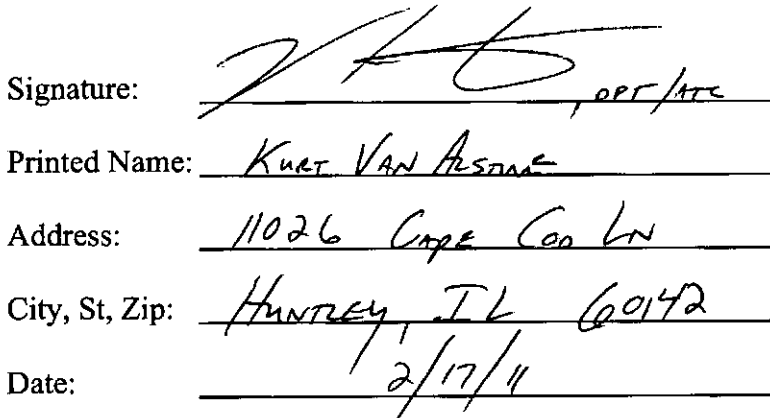 Signature: , DPT/ATC
Printed Name: Kurt Van Alstine
Address: 11026 Cape Cod Ln
City, St, Zip: Huntley, IL 60142
Date: 2/17/11